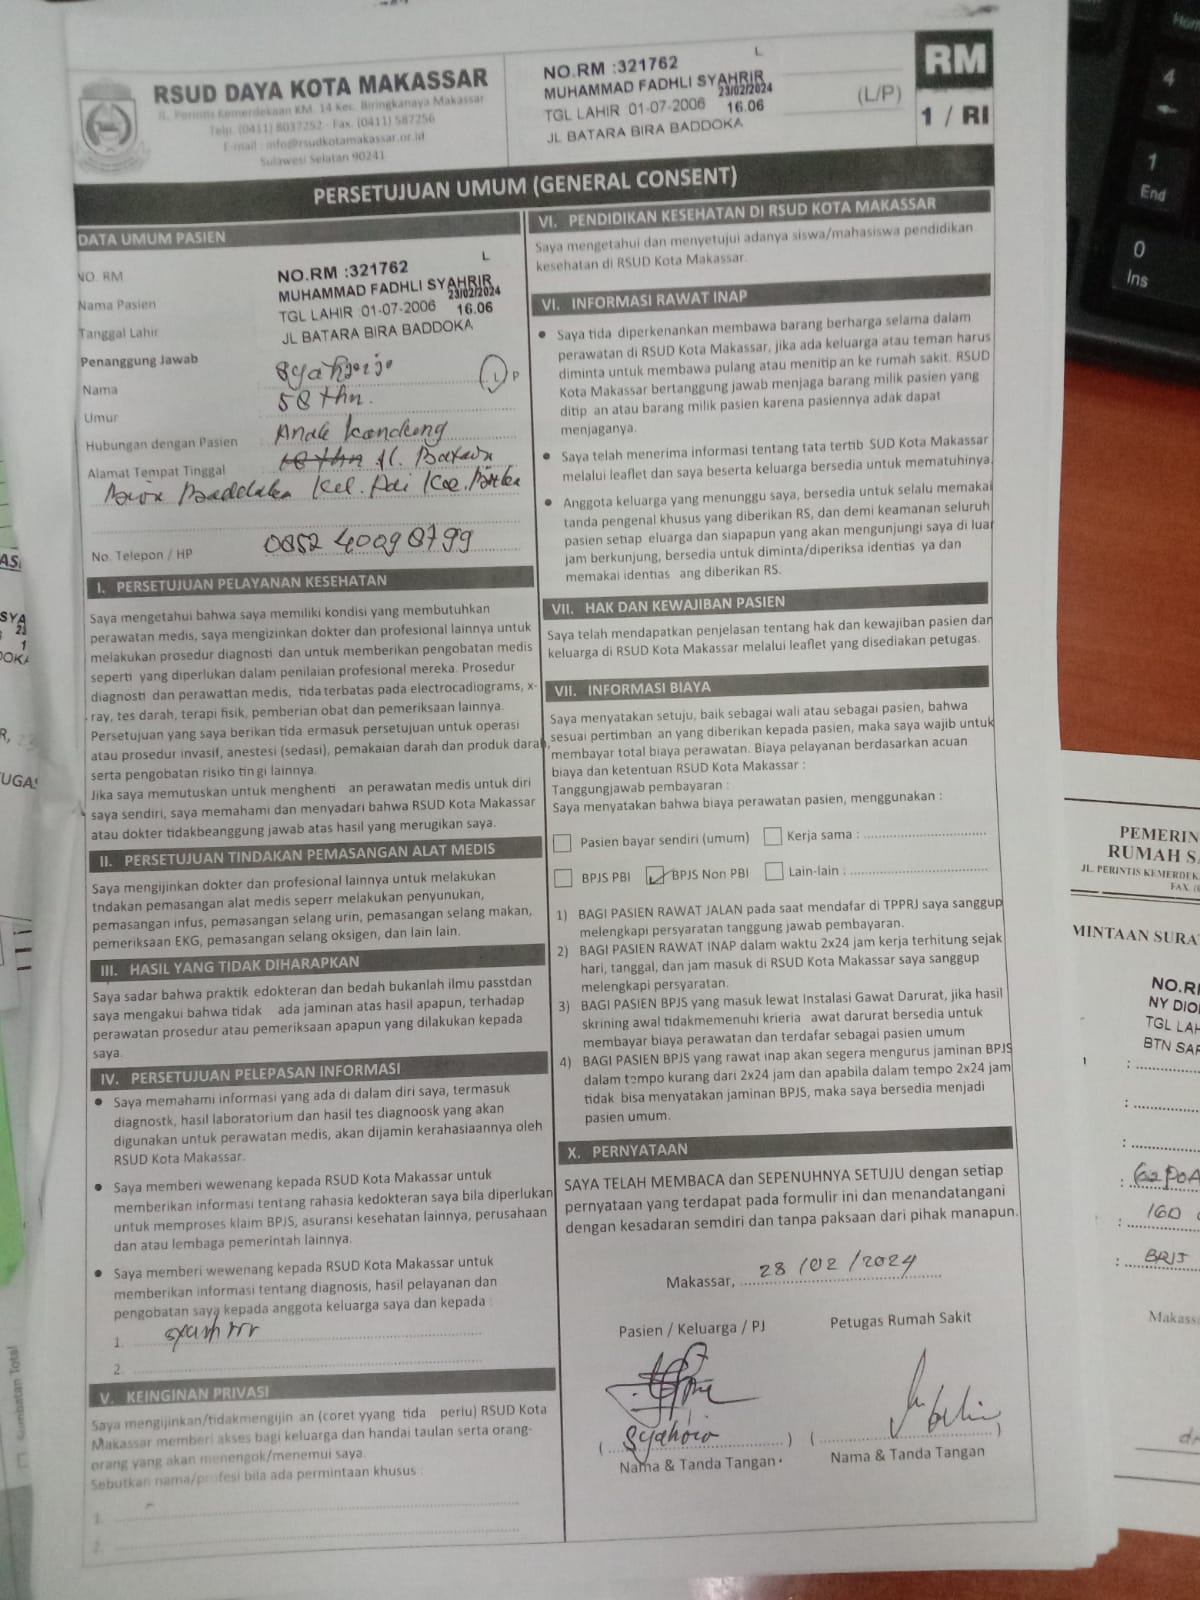 RSUD DAYA KOTA MAKASSAR
JL. Perintis Kemerdekaan KM. 14 Kec. Biringkanaya Makassar
Telp. (0411) 8037252 - Fax. (0411) 587256
E-mail : info@rsudkotamakassar.or.id
Sulawesi Selatan 90241
L
NO.RM :321762
MUHAMMAD FADHLI SYAHRIR
23/02/2024
TGL LAHIR 01-07-2006 16.06
JL BATARA BIRA BADDOKA
(L/P)
RM
1 / RI
PERSETUJUAN UMUM (GENERAL CONSENT)
DATA UMUM PASIEN
NO. RM
Nama Pasien
Tanggal Lahir
L
NO.RM :321762
MUHAMMAD FADHLI SYAHRIR
23/02/2024
TGL LAHIR 01-07-2006 16.06
JL BATARA BIRA BADDOKA
Penanggung Jawab
Nama L P
Umur 58 thn.
Hubungan dengan Pasien Anak Kandung
Alamat Tempat Tinggal Jl. Batara
Bira Baddoka Kel. Pai Kec.
No. Telepon / HP
I. PERSETUJUAN PELAYANAN KESEHATAN
Saya mengetahui bahwa saya memiliki kondisi yang membutuhkan
perawatan medis, saya mengizinkan dokter dan profesional lainnya untuk
melakukan prosedur diagnosti dan untuk memberikan pengobatan medis
seperti yang diperlukan dalam penilaian profesional mereka. Prosedur
diagnosti dan perawattan medis, tida terbatas pada electrocadiograms, x-
ray, tes darah, terapi fisik, pemberian obat dan pemeriksaan lainnya.
Persetujuan yang saya berikan tida ermasuk persetujuan untuk operasi
atau prosedur invasif, anestesi (sedasi), pemakaian darah dan produk darah,
serta pengobatan risiko tin gi lainnya.
Jika saya memutuskan untuk menghenti an perawatan medis untuk diri
saya sendiri, saya memahami dan menyadari bahwa RSUD Kota Makassar
atau dokter tidakbeanggung jawab atas hasil yang merugikan saya.
II. PERSETUJUAN TINDAKAN PEMASANGAN ALAT MEDIS
Saya mengijinkan dokter dan profesional lainnya untuk melakukan
tndakan pemasangan alat medis seperr melakukan penyunukan,
pemasangan infus, pemasangan selang urin, pemasangan selang makan,
pemeriksaan EKG, pemasangan selang oksigen, dan lain lain.
III. HASIL YANG TIDAK DIHARAPKAN
Saya sadar bahwa praktik edokteran dan bedah bukanlah ilmu passtdan
saya mengakui bahwa tidak ada jaminan atas hasil apapun, terhadap
perawatan prosedur atau pemeriksaan apapun yang dilakukan kepada
saya.
IV. PERSETUJUAN PELEPASAN INFORMASI
• Saya memahami informasi yang ada di dalam diri saya, termasuk
diagnostk, hasil laboratorium dan hasil tes diagnoosk yang akan
digunakan untuk perawatan medis, akan dijamin kerahasiaannya oleh
RSUD Kota Makassar.
• Saya memberi wewenang kepada RSUD Kota Makassar untuk
memberikan informasi tentang rahasia kedokteran saya bila diperlukan
untuk memproses klaim BPJS, asuransi kesehatan lainnya, perusahaan
dan atau lembaga pemerintah lainnya.
• Saya memberi wewenang kepada RSUD Kota Makassar untuk
memberikan informasi tentang diagnosis, hasil pelayanan dan
pengobatan saya kepada anggota keluarga saya dan kepada :
1.
2.
V. KEINGINAN PRIVASI
Saya mengijinkan/tidakmengijin an (coret yyang tida perlu) RSUD Kota
Makassar memberi akses bagi keluarga dan handai taulan serta orang-
orang yang akan menengok/menemui saya.
Sebutkan nama/profesi bila ada permintaan khusus :
1.
2.
VI. PENDIDIKAN KESEHATAN DI RSUD KOTA MAKASSAR
Saya mengetahui dan menyetujui adanya siswa/mahasiswa pendidikan
kesehatan di RSUD Kota Makassar.
VI. INFORMASI RAWAT INAP
• Saya tida diperkenankan membawa barang berharga selama dalam
perawatan di RSUD Kota Makassar, jika ada keluarga atau teman harus
diminta untuk membawa pulang atau menitip an ke rumah sakit. RSUD
Kota Makassar bertanggung jawab menjaga barang milik pasien yang
ditip an atau barang milik pasien karena pasiennya adak dapat
menjaganya.
• Saya telah menerima informasi tentang tata tertib SUD Kota Makassar
melalui leaflet dan saya beserta keluarga bersedia untuk mematuhinya.
• Anggota keluarga yang menunggu saya, bersedia untuk selalu memakai
tanda pengenal khusus yang diberikan RS, dan demi keamanan seluruh
pasien setiap eluarga dan siapapun yang akan mengunjungi saya di luar
jam berkunjung, bersedia untuk diminta/diperiksa identias ya dan
memakai identias ang diberikan RS.
VII. HAK DAN KEWAJIBAN PASIEN
Saya telah mendapatkan penjelasan tentang hak dan kewajiban pasien dan
keluarga di RSUD Kota Makassar melalui leaflet yang disediakan petugas.
VII. INFORMASI BIAYA
Saya menyatakan setuju, baik sebagai wali atau sebagai pasien, bahwa
sesuai pertimban an yang diberikan kepada pasien, maka saya wajib untuk
membayar total biaya perawatan. Biaya pelayanan berdasarkan acuan
biaya dan ketentuan RSUD Kota Makassar :
Tanggungjawab pembayaran :
Saya menyatakan bahwa biaya perawatan pasien, menggunakan :
Pasien bayar sendiri (umum) Kerja sama :
BPJS PBI ✓ BPJS Non PBI Lain-lain :
1) BAGI PASIEN RAWAT JALAN pada saat mendafar di TPPRJ saya sanggup
melengkapi persyaratan tanggung jawab pembayaran.
2) BAGI PASIEN RAWAT INAP dalam waktu 2x24 jam kerja terhitung sejak
hari, tanggal, dan jam masuk di RSUD Kota Makassar saya sanggup
melengkapi persyaratan.
3) BAGI PASIEN BPJS yang masuk lewat Instalasi Gawat Darurat, jika hasil
skrining awal tidakmemenuhi krieria awat darurat bersedia untuk
membayar biaya perawatan dan terdafar sebagai pasien umum
4) BAGI PASIEN BPJS yang rawat inap akan segera mengurus jaminan BPJS
dalam tempo kurang dari 2x24 jam dan apabila dalam tempo 2x24 jam
tidak bisa menyatakan jaminan BPJS, maka saya bersedia menjadi
pasien umum.
X. PERNYATAAN
SAYA TELAH MEMBACA dan SEPENUHNYA SETUJU dengan setiap
pernyataan yang terdapat pada formulir ini dan menandatangani
dengan kesadaran semdiri dan tanpa paksaan dari pihak manapun.
Makassar, 23/02/2024
Pasien / Keluarga / PJ Petugas Rumah Sakit
Nama & Tanda Tangan Nama & Tanda Tangan
4
1
End
0
Ins
PEMERIN
RUMAH SA
JL. PERINTIS KEMERDEK
MINTAAN SURA
NO.R
NY DIO
TGL LAH
BTN SAR
Makass